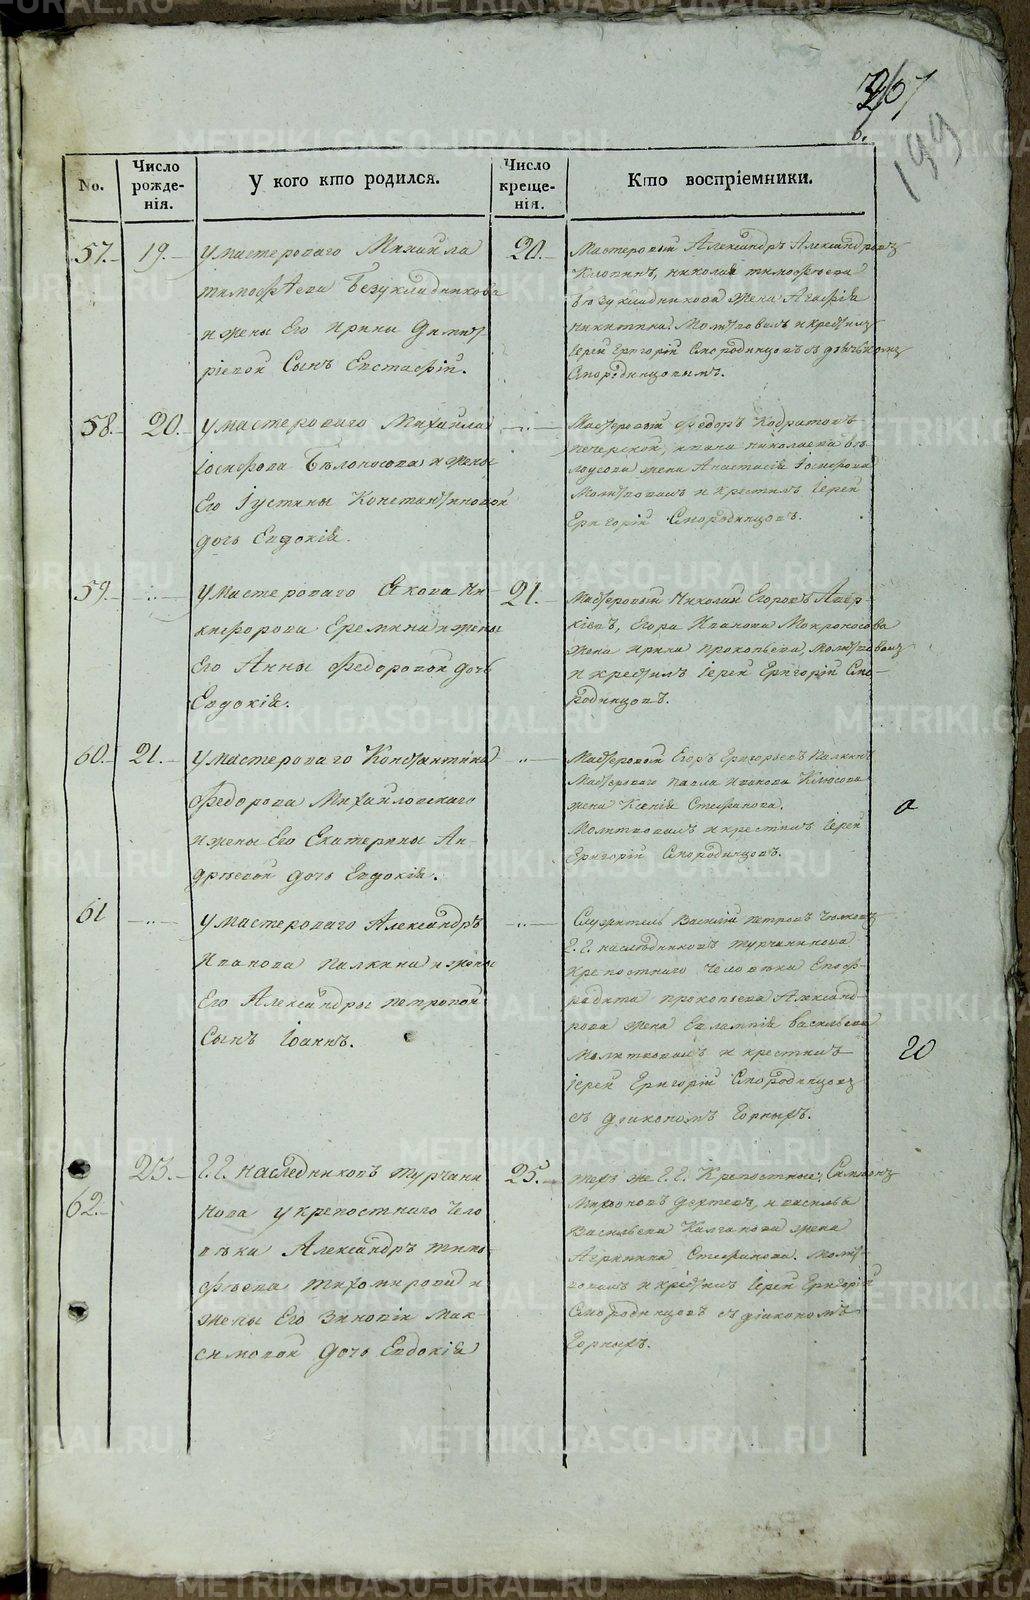 267
199
6.
No.
Число рожде-нія.
У кого кто родился.
Число креще-нія.
Кто воспріемники.
57.
19.
У мастероваго Михаила
Тимофѣева Безукладникова
и жены Его Ирины Димит
ріевой Сынъ Евстафій.
20.
Мастеровый Александръ Александровъ
Клопинъ, николая тимофѣева
Безукладникова жена Агафія
никитина. Молитвовалъ и крестилъ
Іерей Григорій Смородинцовъ съ дьячкомъ
Смородинцовымъ.
58.
20.
У мастероваго Михаила
Іосифова Бѣлоносова и жены
Его Іустины Константиновой
дочь Евдокія.
Мастеровый Федоръ Кодратовъ
печерской, ивана николаева Бѣ
лоусова жена Анастасія Іосифова
Молитвовалъ и крестилъ Іерей
Григорій Смородинцовъ.
59.
У Мастероваго Якова Ни-
кифорова Еремина и жены
Его Анны Федоровой дочь
Евдокія.
21.
Мастеровый Николай Егоровъ Авер-
кіевъ, Егора Иванова Мокроносова
жена ирина прокопьева, молитвовалъ
и крестилъ Іерей Григорій Смо-
родинцовъ.
60.
21.
У мастероваго Константина
Федорова Михайловскаго
и жены Его Екатерины Ан-
дрѣевой дочь Евдокія.
Мастеровый Егоръ Григорьевъ Палкинъ
Мастероваго павла иванова Клюсова
жена Ксенія Стефанова.
Молитвовалъ и крестилъ Іерей
Григорій Смородинцовъ.
61
У мастероваго Александръ
Иванова Палкина и жены
Его Александры петровой
Сынъ Іоаннъ.
Служитель Василій петровъ Чолковъ
Г. Г. наслѣдниковъ турчанинова
Крепостнаго человѣка Епаф-
радита прокопьева Александ-
рова жена Евлампія васильева
Молитвовалъ и крестилъ
Іерей Григорій Смородинцовъ
съ діакономъ Горныхъ.
20
62.
23.
Г. Г. наследниковъ турчани
нова у крепостнаго Чело
вѣка Александръ тимо-
фѣева тихомирова и
жены Его Зиновіи Мак-
симовой дочь Евдокія
25.
техъ же Г. Г. Крепостные: Симионъ
васильева
Васильева Калганова жена
Агрипина Стефанова. Молит-
вовалъ и крестилъ Іерей Григорій
Смородинцовъ съ діакономъ
Горныхъ.
METRIKI.GASO-URAL.RU